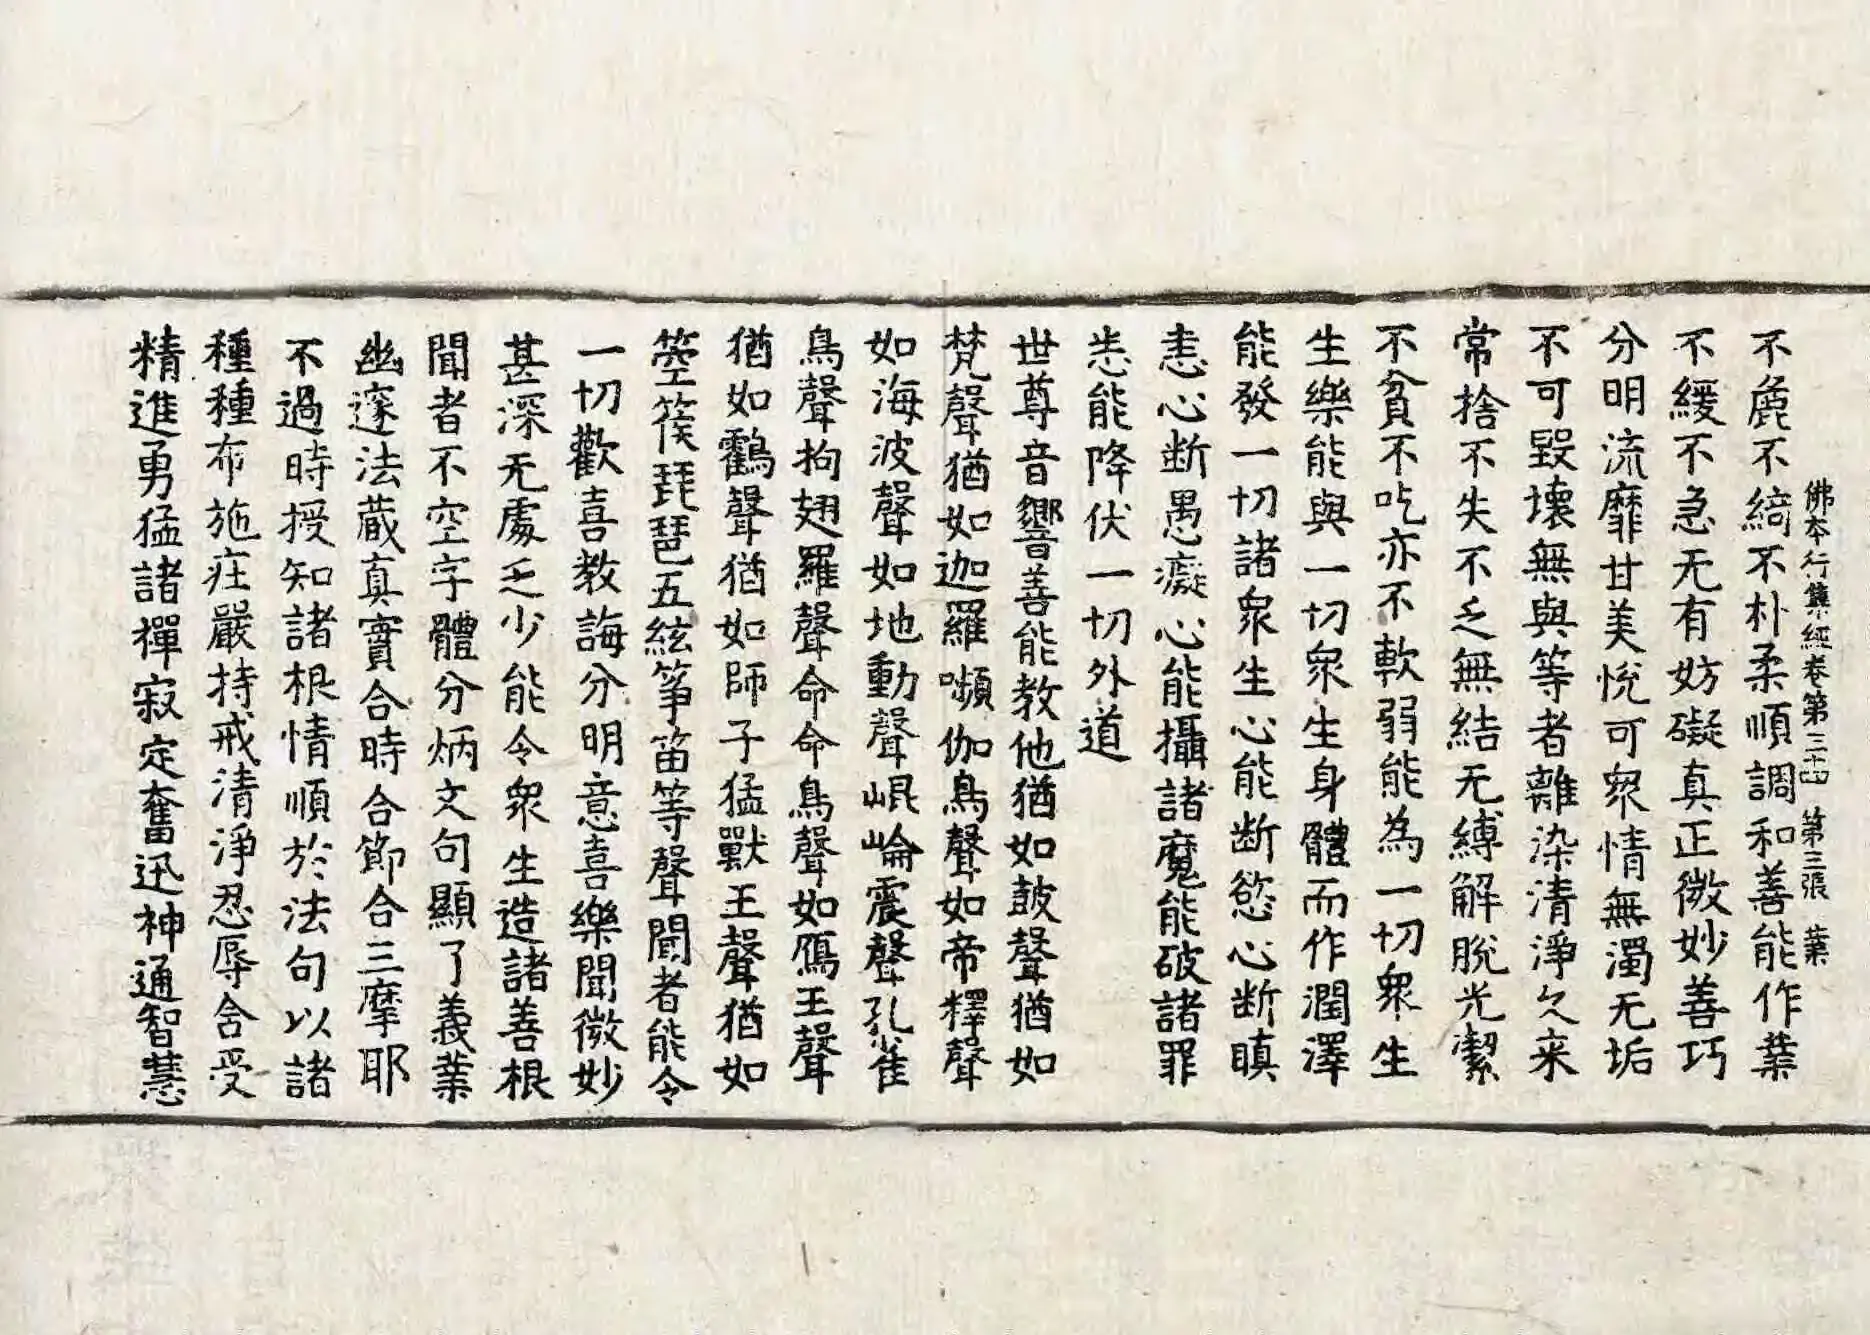 佛本行集經卷第三十四　第三張　葉
不麁不䌥不朴柔順調和善能作業
不緩不急无有妨礙真正微妙善巧
分明流靡甘美悅可眾情無濁无垢
不可毀壞無與等者離染清淨久来
常捨不失不乏無結无縛解脫光潔
不貧不吃亦不軟弱能為一切眾生
生樂能與一切眾生身體而作潤澤
能發一切諸眾生心能断慾心断瞋
恚心断愚癡心能攝諸魔能破諸罪
恙能降伏一切外道
世尊音響善能教他猶如鼓聲猶如
梵聲猶如迦羅嚬伽鳥聲如帝釋聲
如海波聲如地動聲崐崘震聲孔雀
鳥聲拘翅羅聲命命鳥聲如鴈王聲
猶如鸖聲猶如師子猛獸王聲猶如
箜篌琵琶五絃筝笛等聲聞者能令
一切歡喜教誨分明意喜樂聞微妙
甚深无處乏少能令眾生造諸善根
聞者不空字體分炳文句顯了義業
幽邃法蔵真實合時合節合三摩耶
不過時授知諸根情順於法句以諸
種種布施庄嚴持戒清淨忍辱含受
精進勇猛諸禪寂定奮迅神通智慧